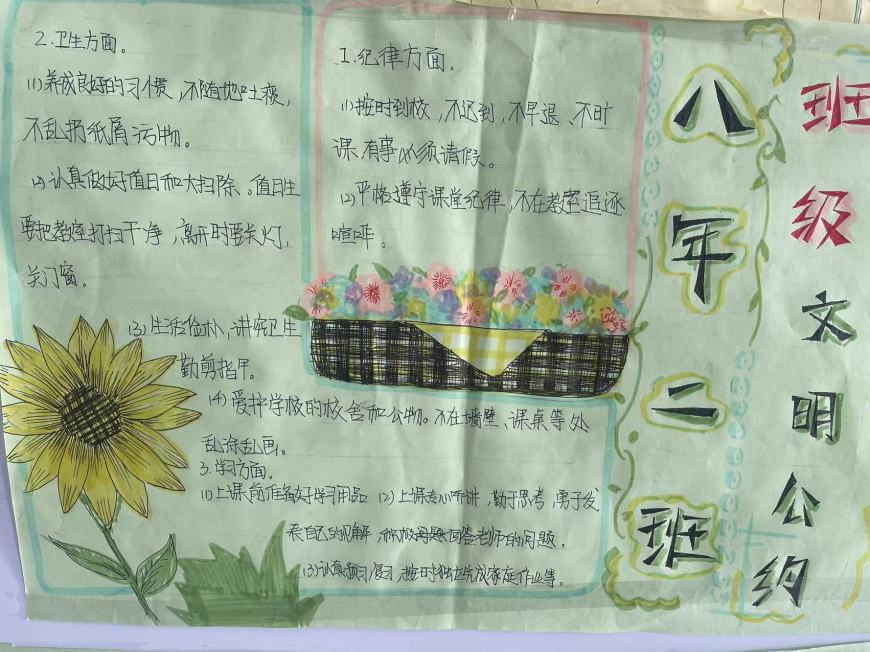 班级文明公约
八年二班
1.纪律方面。
(1)按时到校,不迟到,不早退、不旷
课,有事必须请假。
(2)严格遵守课堂纪律,不在教室追逐
喧哗。
2.卫生方面。
(1)养成良好的习惯,不随地吐痰,
不乱扔纸屑污物。
(2)认真做好值日和大扫除。值日生
要把教室打扫干净,离开时要关灯,
关门窗。
(3)生活俭朴,讲究卫生
勤剪指甲。
(4)爱护学校的校舍和公物。不在墙壁、课桌等处
乱涂乱画。
3.学习方面。
(1)上课前准备好学习用品 (2)上课专心听讲,勤于思考,勇于发
表自己的见解,积极回答老师的问题。
(3)认真预习、复习,按时独立完成家庭作业等。